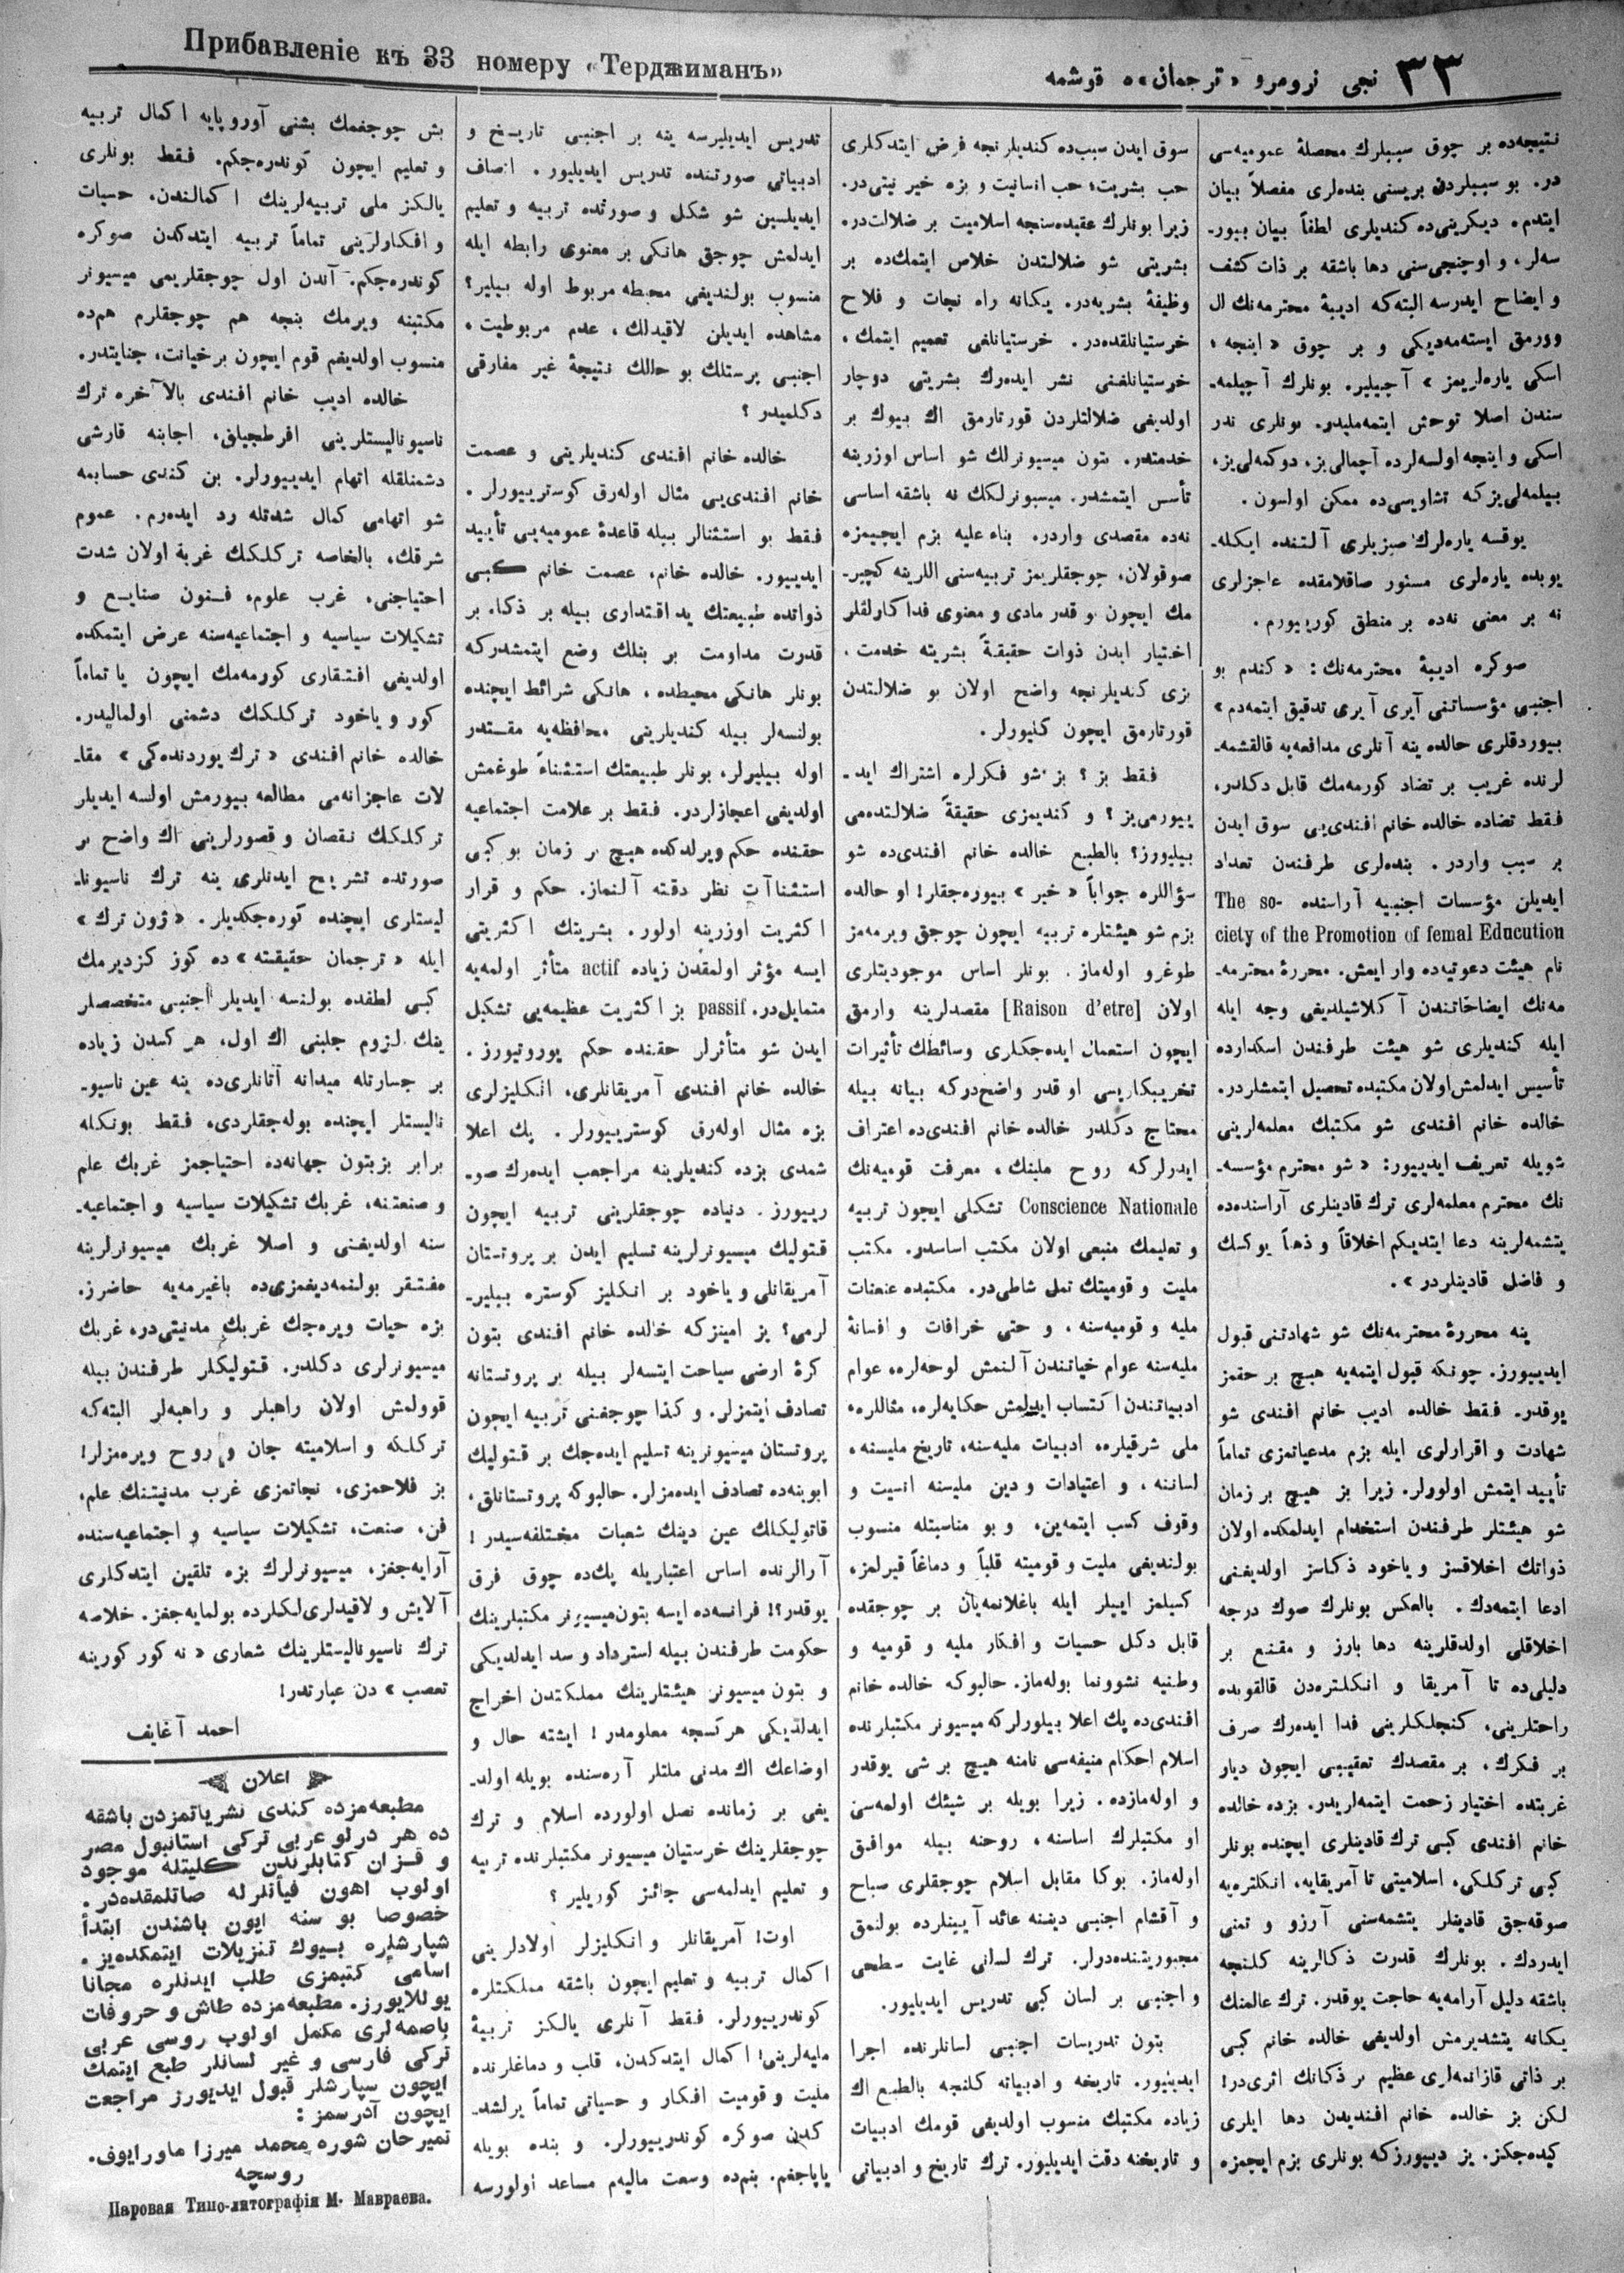 Прибавленіе къ 33 номеру «Терджиманъ»
٣٣ نجی نرومرو «ترجمان»ه قوشمه
نتیجه‌ده بر چوق سببلرك محصلهٔ عمومیه‌سی
در. بو سببلردن بریسنی بنده‌لری مفصلاً بیان
ایتدم، دیكرینی‌ده كندیلری لطفاً بیان بیور-
سه‌لر، و اوچنجی‌سنی دها باشقه بر ذات كشف
و ایضاح ایدرسه البته‌كه ادیبهٔ محترمه‌نك ال
وورمق ایسته‌مه‌دیكی و بر چوق «اینجه،
اسكی یاره‌لریمز» آچیلیر. بونلرك آچیلمه-
سندن اصلا توحش ایتمه‌ملیدر. بونلری ندر
اسكی و اینجه اولسه‌لرده آچمالی‌یز، دوكمه‌لی‌یز،
بیلمه‌لی‌یز كه تشاویسی‌ده ممكن اولسون.
یوقسه یاره‌لرك صیزیلری آلتنده ایكله-
یوبده یاره‌لری مستور صاقلامقده عاجزلری
نه بر معنی نه‌ده بر منطق كورییورم.
صوكره ادیبهٔ محترمه‌نك: «كندم بو
اجنبی مؤسساتنی آیری آیری تدقیق ایتمه‌دم»
بیوردقلری حالده ینه آنلری مدافعه‌یه قالقشمه-
لرنده غریب بر تضاد كورمه‌مك قابل دكلدر،
فقط تضاده خالده خانم افندی‌یی سوق ایدن
بر سبب واردر. بنده‌لری طرفندن تعداد
ایدیلن مؤسسات اجنبیه آراسنده The so-
ciety of the Promotion of femal Educution
نام هیئت دعوتیه‌ده وار ایمش. محررهٔ محترمه-
مه‌نك ایضاحاتندن آكلاشیلدیغی وجه ایله
ایله كندیلری شو هیئت طرفندن اسكدارده
تأسیس ایدلمش اولان مكتبده تحصیل ایتمشلردر.
خالده خانم افندی شو مكتبك معلمه‌لرینی
شویله تعریف ایدییور: «شو محترم مؤسسه-
نك محترم معلمه‌لری ترك قادینلری آراسنده‌ده
یتشمه‌لرینه دعا ایتدیكم اخلاقاً و ذهناً یوكسك
و فاضل قادینلردر».
ینه محررهٔ محترمه‌نك شو شهادتنی قبول
ایدییورز. چونكه قبول ایتمه‌یه هیچ بر حقمز
یوقدر. فقط خالده ادیب خانم افندی شو
شهادت و اقرارلری ایله بزم مدعیاتمزی تماماً
تأیید ایتمش اولورلر. زیرا بز هیچ بر زمان
شو هیئتلر طرفندن استخدام ایدلمكده اولان
ذواتك اخلاقسز و یاخود ذكاسز اولدیغنی
ادعا ایتمه‌دك. بالعكس بونلرك صوك درجه
اخلاقلی اولدقلرینه دها بارز و مقنع بر
دلیلی‌ده تا آمریقا و انكلتره‌دن قالقوبده
راحتلرینی، كنجلكلرینی فدا ایده‌رك صرف
بر فكرك، بر مقصدك تعقیبی ایچون دیار
غربتده اختیار زحمت ایتمه‌لریدر. بزده خالده
خانم افندی كبی ترك قادینلری ایچنده بونلر
كبی تركلكی، اسلامیتی تا آمریقایه، انكلتره‌یه
صوقه‌جق قادینلر یتشمه‌سنی آرزو و تمنی
ایدردك. بونلرك قدرت ذكالرینه كلنجه
باشقه دلیل آرامه‌یه حاجت یوقدر. ترك عالمنك
یكانه یتشدیرمش اولدیغی خالده خانم كبی
بر ذاتی قازانمه‌لری عظیم بر ذكانك اثری‌در!
لكن بز خالده خانم افندیدن دها ایلری
كیده‌جكز. بز دییورزكه بونلری بزم ایچمزه
سوق ایدن سبب‌ده كندیلرنجه فرض ایتدكلری
حب بشریت، حب انسانیت و بزه خیر نیتی‌در.
زیرا بونلرك عقیده‌سنجه اسلامیت بر ضلالت‌در،
بشریتی شو ضلالتدن خلاص ایتمك‌ده بر
وظیفهٔ بشریه‌در. یكانه راه نجات و فلاح
خرستیانلقده‌در. خرستیانلغی تعمیم ایتمك،
خرستیانلغنی نشر ایده‌رك بشریتی دوچار
اولدیغی ضلالتلردن قورتارمق اك بیوك بر
خدمتدر. بتون میسیونرلك شو اساس اوزرینه
تأسس ایتمشدر. میسیونرلكك نه باشقه اساسی
نه‌ده مقصدی واردر. بناء علیه بزم ایچیمزه
صوقولان، چوجقلریمز تربیه‌سنی اللرینه كچیر-
مك ایچون و قدر مادی و معنوی فداكارلقلر
اختیار ایدن ذوات حقیقةً بشریته خدمت،
بزی كندیلرنجه واضح اولان بو ضلالتدن
قورتارمق ایچون كلیورلر.
فقط بز؟ بز شو فكرلره اشتراك اید-
ییورمی‌یز؟ و كندیمزی حقیقةً ضلالتده‌می
بیلیورز؟ بالطبع خالده خانم افندی‌ده شو
سؤاللره جواباً «خیر» بیوره‌جقلر! او حالده
بزم شو هیئتلره تربیه ایچون چوجق ویرمه‌مز
طوغرو اوله‌ماز. بونلر اساس موجودیتلری
اولان [Raison d'etre] مقصدلرینه وارمق
ایچون استعمال ایده‌جكلری وسائطك تأثیرات
تخریبكاریسی او قدر واضح‌دركه بیانه بیله
محتاج دكلدر خالده خانم افندی‌ده اعتراف
ایدرلركه روح ملینك، معرفت قومیه‌نك
Conscience Nationale تشكلی ایچون تربیه
و تعلیمك منبعی اولان مكتب اساسدر. مكتب
ملیت و قومیتك تمل شاطی‌در. مكتبده عنعنات
ملیه و قومیه‌سنه، و حتی خرافات و افسانهٔ
ملیه‌سنه عوام حیاتندن آلنمش لوحه‌لره، عوام
ادبیاتندن اكتساب ایدلمش حكایه‌لره، مثاللره،
ملی شرقیلره، ادبیات ملیه‌سنه، تاریخ ملیسنه،
لساننه، و اعتیادات و دین ملیسنه انسیت و
وقوف كسب ایتمه‌ین، و بو مناسبتله منسوب
بولندیغی ملیت و قومیته قلباً و دماغاً قیرلمز،
كسیلمز ایپلر ایله باغلانمه‌یان بر چوجقده
قابل دكل حسیات و افكار ملیه و قومیه و
وطنیه نشوونما بوله‌ماز. حالبوكه خالده خانم
افندی‌ده پك اعلا بیلورلركه میسیونر مكتبلرنده
اسلام احكام منیفه‌سی نامنه هیچ بر شی یوقدر
و اوله‌مازده. زیرا بویله بر شیئك اولمه‌سی
او مكتبلرك اساسنه، روحنه بیله موافق
اوله‌ماز. بوكا مقابل اسلام چوجقلری صباح
و آقشام اجنبی دیننه عائد آیینلرده بولنمق
مجبوریتنده‌درلر. ترك لسانی غایت سطحی
و اجنبی بر لسان كبی تدریس ایدیلیور.
بتون تدریسات اجنبی لسانلرنده اجرا
ایدیلیور. تاریخه و ادبیاته كلنجه بالطبع اك
زیاده مكتبك منسوب اولدیغی قومك ادبیات
و تاریخنه دقت ایدیلیور. ترك تاریخ و ادبیاتی
تدریس ایدیلیرسه ینه بر اجنبی تاریخ و
ادبیاتی صورتنده تدریس ایدیلیور. انصاف
ایدیلسین شو شكل و صورتده تربیه و تعلیم
ایدلمش چوجق هانكی بر معنوی رابطه ایله
منسوب بولندیغی محیطه مربوط اوله بیلیر؟
مشاهده ایدیلن لاقیدلك، عدم مربوطیت،
اجنبی پرستلك بو حالك نتیجهٔ غیر مفارقی
دكلمیدر؟
خالده خانم افندی كندیلرینی و عصمت
خانم افندی‌یی مثال اوله‌رق كوسترییورلر.
فقط بو استثنالر بیله قاعدهٔ عمومیه‌یی تأیید
ایدییور. خالده خانم، عصمت خانم كبی
ذواتده طبیعتك ید اقتداری بیله بر ذكاء بر
قدرت مداومت بر بنلك وضع ایتمشدركه
بونلر هانكی محیطده، هانكی شرائط ایچنده
بولنسه‌لر بیله كندیلرینی محافظه‌یه مقتدر
اوله بیلیرلر، بونلر طبیعتك استثناءً طوغمش
اولدیغی اعجازلردر. فقط بر علامت اجتماعیه
حقنده حكم ویرلدكده هیچ بر زمان بو كبی
استثناآت نظر دقته آلنماز. حكم و قرار
اكثریت اوزرینه اولور. بشریتك اكثریتی
ایسه مؤثر اولمقدن زیاده actif متأثر اولمه‌یه
متمایل‌در. passif بز اكثریت عظیمه‌یی تشكیل
ایدن شو متأثرلر حقنده حكم یوروتیورز.
خالده خانم افندی آمریقانلری، انكلیزلری
بزه مثال اوله‌رق كوسترییورلر. پك اعلا
شمدی بزده كندیلرینه مراجعت ایده‌رك صو-
رییورز. دنیاده چوجقلرینی تربیه ایچون
قتولیك میسیونرلرینه تسلیم ایدن بر پروتستان
آمریقانلی و یاخود بر انكلیز كوستره بیلیر-
لرمی؟ بز امینزكه خالده خانم افندی بتون
كرهٔ ارضی سیاحت ایتسه‌لر بیله بر پروتستانه
تصادف ایتمزلر. و كذا چوجغنی تربیه ایچون
پروتستان میسیونرینه تسلیم ایده‌جك بر قتولیك
ابوینه‌ده تصادف ایده‌مزلر. حالبوكه پروتستانلق،
قاتولیكلك عین دینك شعبات مختلفه‌سیدر!
آرالرنده اساس اعتباریله پك‌ده چوق فرق
یوقدر؟! فرانسه‌ده ایسه بتون میسیونر مكتبلرینك
حكومت طرفندن بیله استرداد و سد ایدلدیكی
و بتون میسیونر هیئتلرینك مملكتدن اخراج
ایدلدیكی هركسجه معلومدر! ایشته حال و
اوضاعك اك مدنی ملتلر آره‌سنده بویله اولد-
یغی بر زمانده نصل اولورده اسلام و ترك
چوجقلرینك خرستیان میسیونر مكتبلرنده تربیه
و تعلیم ایدلمه‌سی جائز كوریلیر؟
اوت! آمریقانلر و انكلیزلر اولادلرینی
اكمال تربیه و تعلیم ایچون باشقه مملكتلره
كوندرییورلر. فقط آنلری یالكز تربیهٔ
ملیه‌لرینی! اكمال ایتدكدن، قلب و دماغلرنده
ملیت و قومیت افكار و حسیاتی تماماً یرلشد-
كدن صوكره كوندرییورلر. و بنده بویله
یاپاجغم. بنم‌ده وسعت مالیه‌م مساعد اولورسه
بش چوجغمك بشنی آوروپایه اكمال تربیه
و تعلیم ایچون كوندره‌جكم. فقط بونلری
یالكز ملی تربیه‌لرینك اكمالندن، حسیات
و افكارلرینی تماماً تربیه ایتدكدن صوكره
كوندره‌جكم. آندن اول چوجقلریمی میسیونر
مكتبنه ویرمك بنجه هم چوجقلرم هم‌ده
منسوب اولدیغم قوم ایچون برخیانت، جنایتدر.
خالده ادیب خانم افندی بالآخره ترك
ناسیونالیستلرینی افرطجیلق، اجانبه قارشی
دشمنلقله اتهام ایدییورلر. بن كندی حسابمه
شو اتهامی كمال شدتله رد ایده‌رم. عموم
شرقك، بالخاصه تركلكك غربه اولان شدت
احتیاجنی، غرب علوم، فنون صنایع و
تشكیلات سیاسیه و اجتماعیه‌سنه عرض ایتمكده
اولدیغی افتقاری كورمه‌مك ایچون یا تماماً
كور و یاخود تركلكك دشمنی اولمالیدر.
خالده خانم افندی «ترك یوردنده‌كی» مقا-
لات عاجزانه‌می مطالعه بیورمش اولسه ایدیلر
تركلكك نقصان و قصورلرینی اك واضح بر
صورتده تشریح ایدنلری ینه ترك ناسیونا-
لیستلری ایچنده كوره‌جكدیلر. «ژون ترك»
ایله «ترجمان حقیقته» ده كوز كزدیرمك
كبی لطفده بولنسه ایدیلر اجنبی متخصصلر
ینك لزوم جلبنی اك اول، هر كسدن زیاده
بر جسارتله میدانه آتانلری‌ده ینه عین ناسیو-
نالیستلر ایچنده بوله‌جقلردی، فقط بونكله
برابر بزبتون جهانه‌ده احتیاجمز غربك علم
و صنعتنه، غربك تشكیلات سیاسیه و اجتماعیه-
سنه اولدیغنی و اصلا غربك میسیونرلرینه
مفتقر بولنمه‌دیغمزی‌ده باغیرمه‌یه حاضرز.
بزه حیات ویره‌جك غربك مدنیتی‌در، غربك
میسیونرلری دكلدر. قتولیكلر طرفندن بیله
قوولمش اولان راهبلر و راهبه‌لر البته‌كه
تركلكه و اسلامیته جان و روح ویره‌مزلر!
بز فلاحمزی، نجاتمزی غرب مدنیتنك علم،
فن، صنعت، تشكیلات سیاسیه و اجتماعیه‌سنده
آرایه‌جغز، میسیونرلرك بزه تلقین ایتدكلری
آلایش و لاقیدلری‌لكلرده بولمایه‌جغز. خلاصه
ترك ناسیونالیستلرینك شعاری «نه كور كورینه
تعصب» دن عبارتدر!
احمد آغایف
اعلان
مطبعه‌مزده كندی نشریاتمزدن باشقه
ده هر درلو عربی تركی استانبول مصر
و قزان كتابلرندن كلیتله موجود
اولوب اهون فیأتلر له صاتلمقده‌در.
خصوصا بو سنه ایون باشندن ابتدأ
شپارشلره بیوك تنزیلات ایتمكده‌یز.
اسامی كتبمزی طلب ایدنلره مجانا
یوللایورز. مطبعه‌مزده طاش و حروفات
باصمه‌لری مكمل اولوب روسی عربی
تركی فارسی و غیر لسانلر طبع ایتمك
ایچون سپارشلر قبول ایدیورز مراجعت
ایچون آدرسمز:
تمیرخان شوره محمد میرزا ماورایوف.
روسچه
Паровая Типо-литографія М. Мавраева.